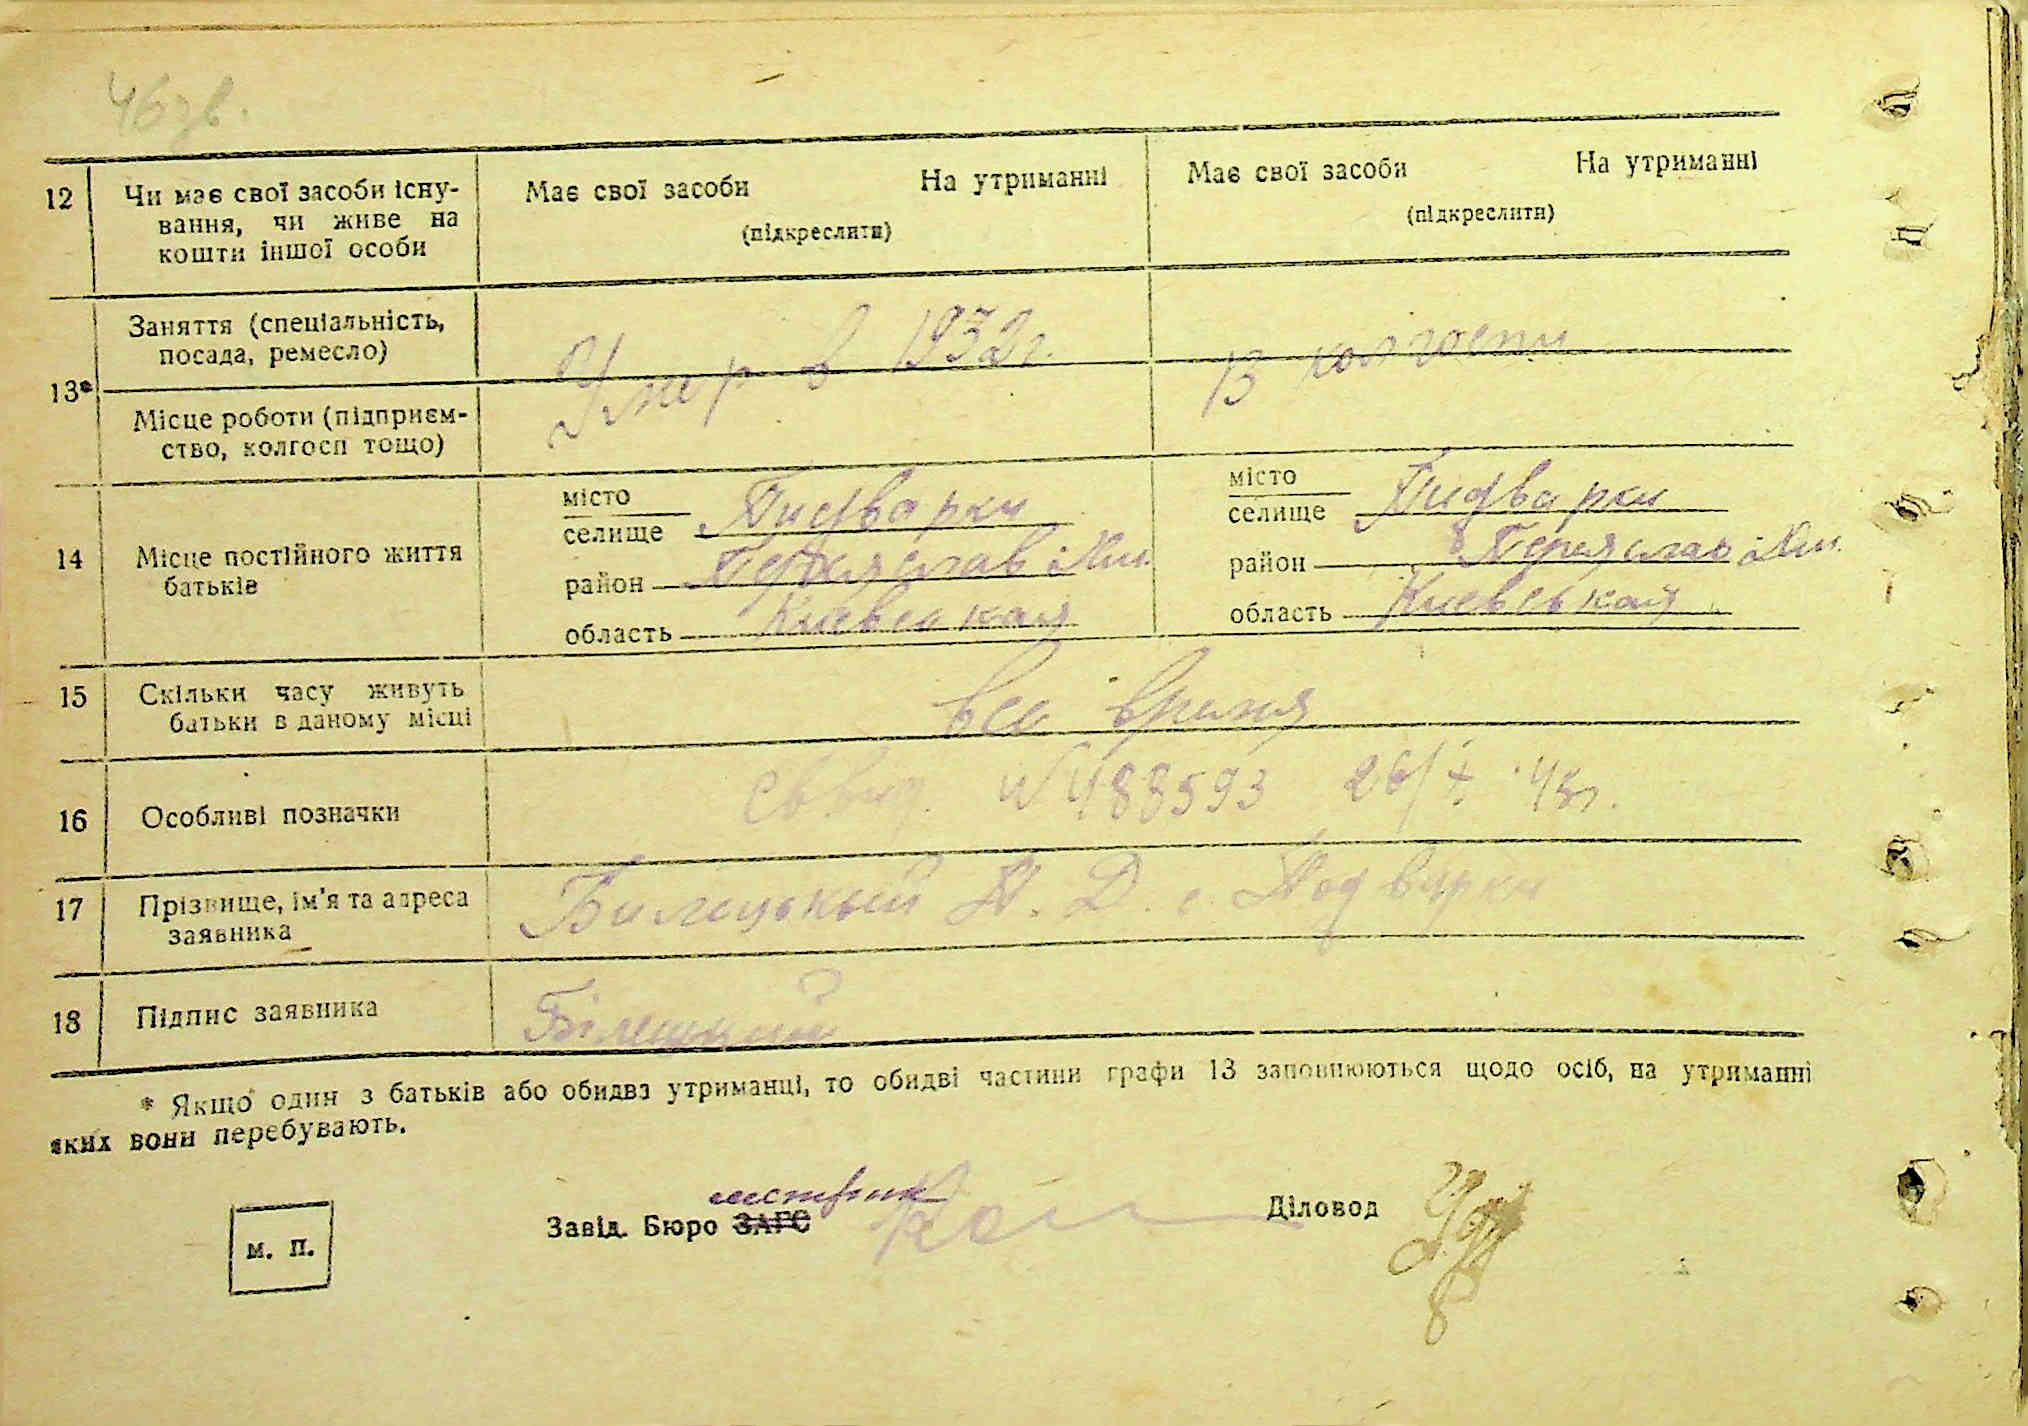 46 зв.
12 Чи має свої засоби існу- Має свої засоби На утриманні Має свої засоби На утриманні
вання, чи живе на (підкреслити) (підкреслити)
кошти іншої особи
Заняття (спеціальність,
посада, ремесло)
Умер в 1932 г. В колгоспи
13*
Місце роботи (підприєм-
ство, колгосп тощо)
14 Місце постійного життя
батьків
місто
селище Пидварки
район Переяслав Хм.
область Киевская
місто
селище Пидварки
район Переяслав Хм.
область Киевськая
15 Скільки часу живуть
батьки в даному місці
все время
16 Особливі позначки № 488593 26/X 45 г.
17 Прізвище, ім'я та адреса
заявника
Билецькый Д. с. Подварки
18 Підпис заявника Білецкий
* Якщо один з батьків або обидва утриманці, то обидві частини графи 13 заповнюються щодо осіб, на утриманні
яких вони перебувають.
м. п.
Завід. Бюро ЗАГС Діловод